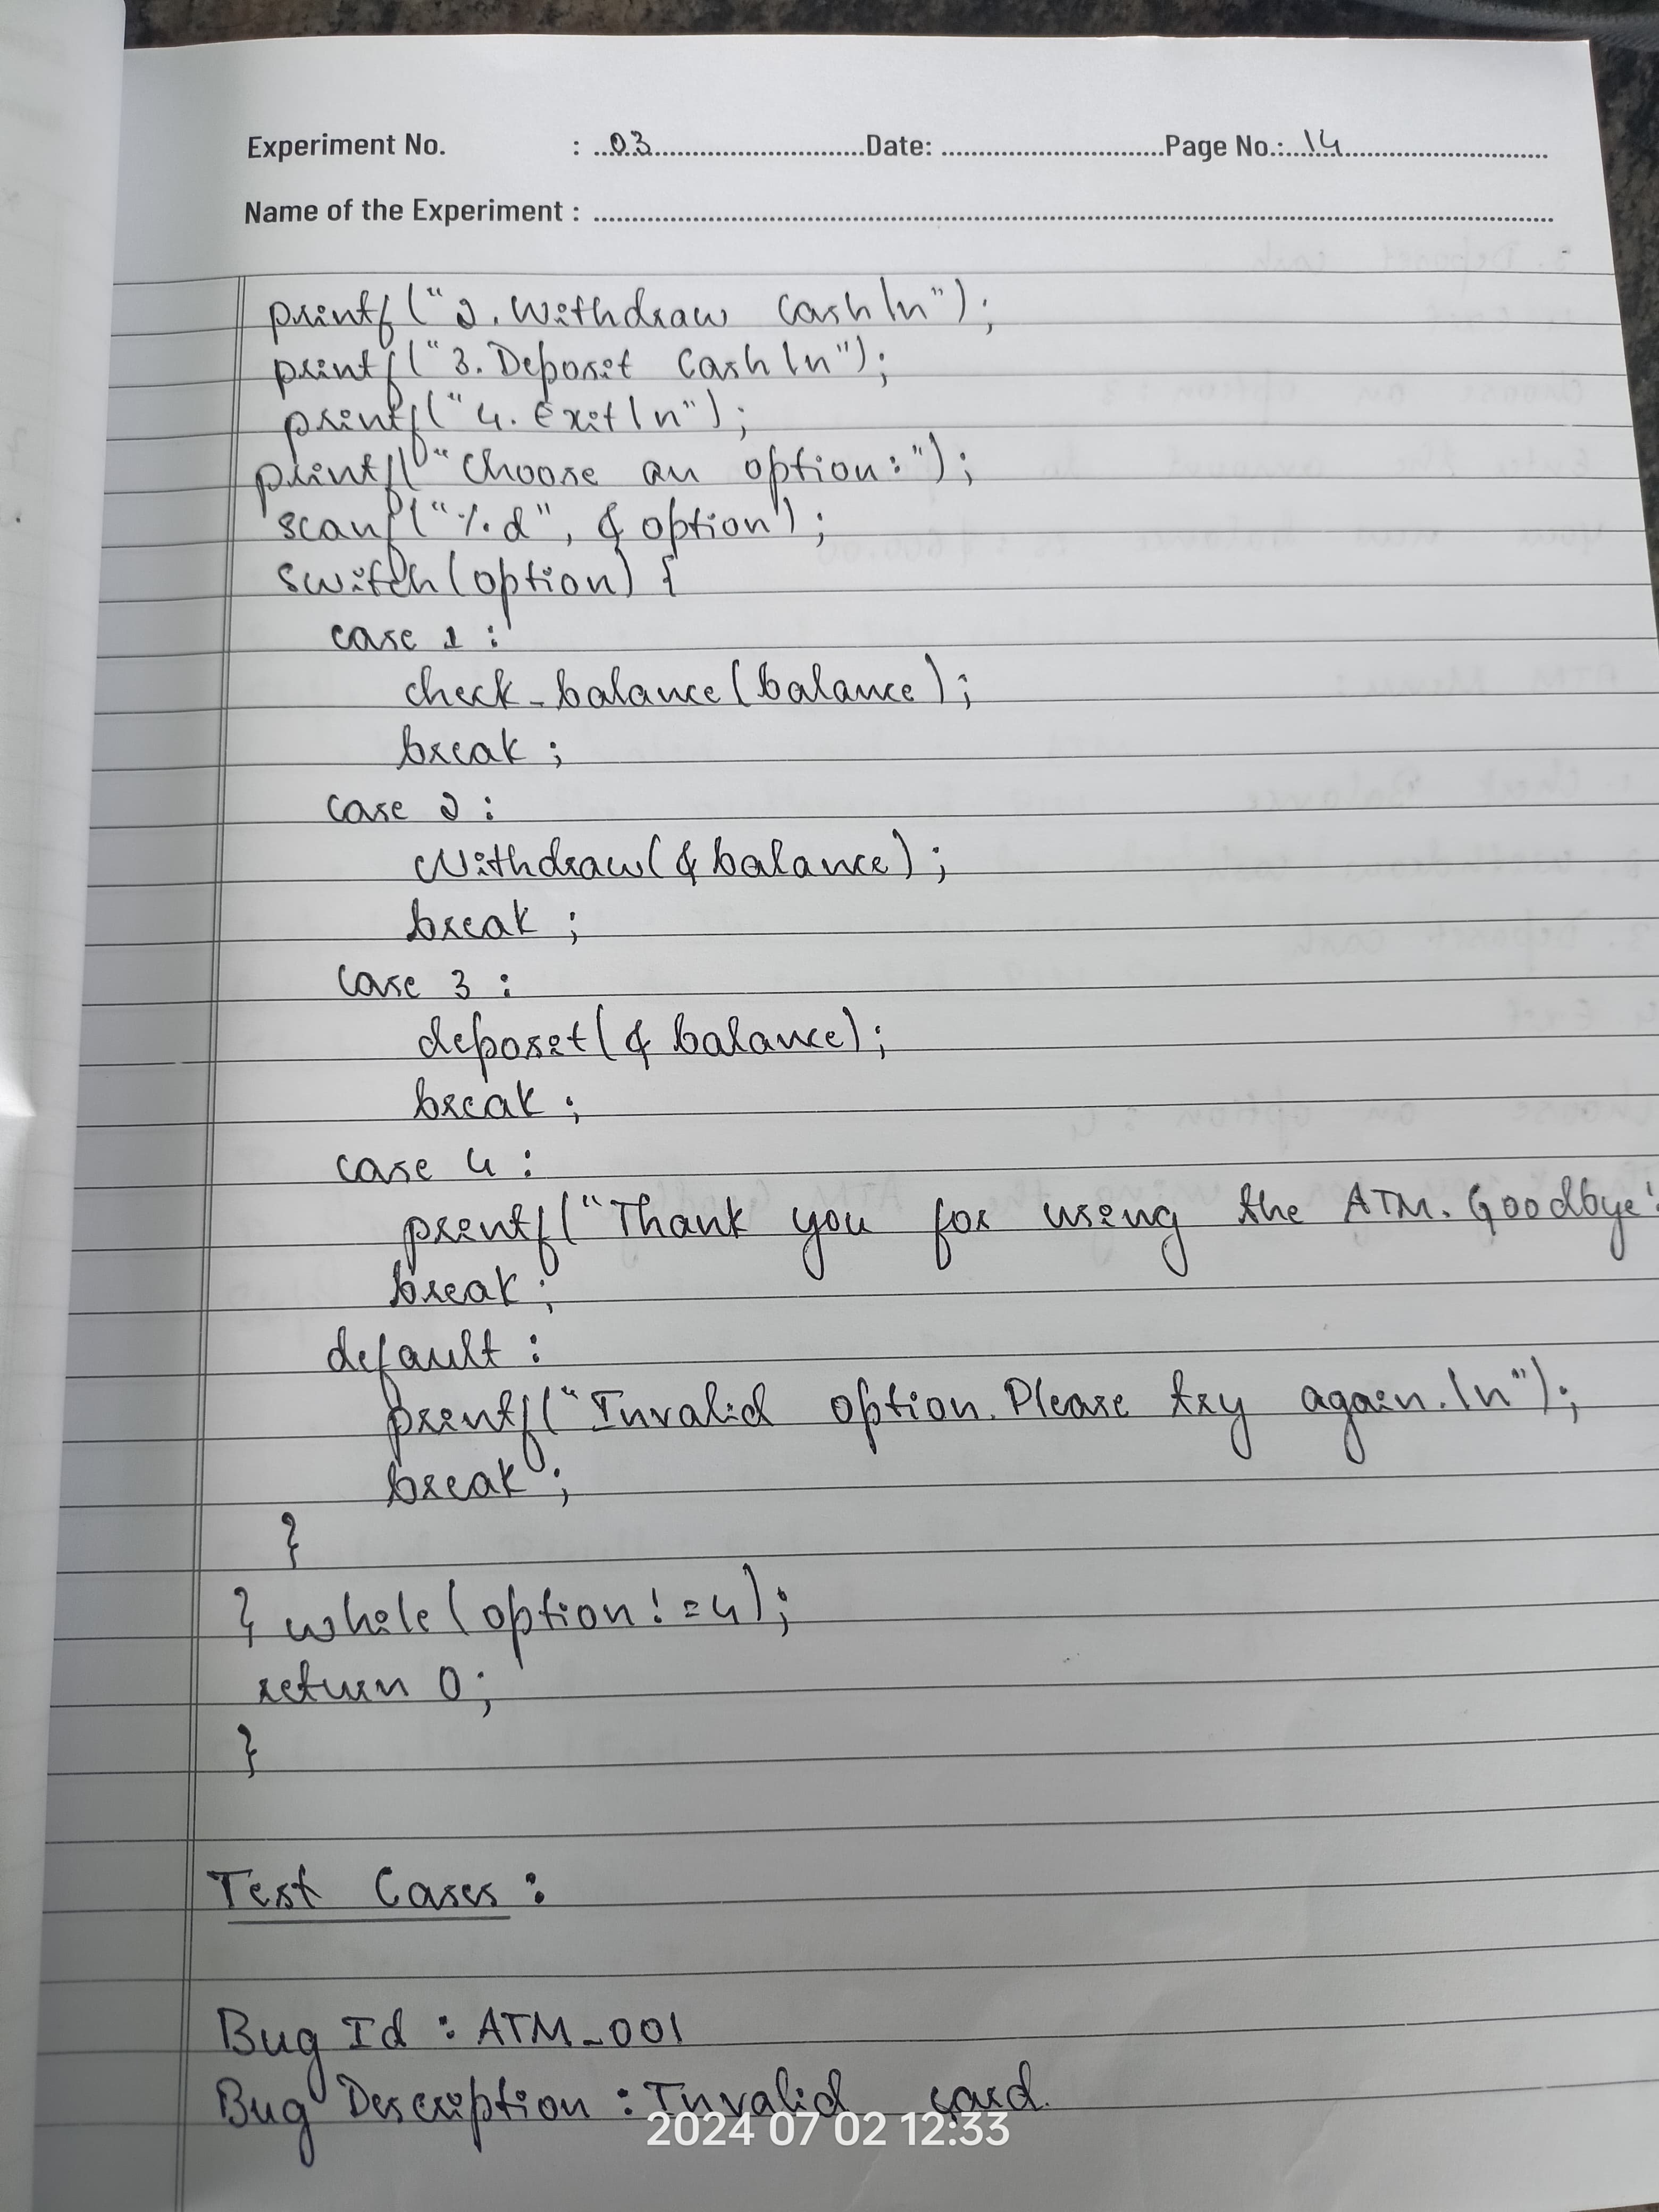 Experiment No. : 03 Date: Page No.: 14
Name of the Experiment :
printf("2. Withdraw Cash\n");
printf("3. Deposit Cash\n");
printf("4. Exit\n");
printf("Choose an option:");
scanf("%d", & option);
switch(option) {
case 1 :
check_balance(balance);
break ;
case 2 :
Withdraw(& balance);
break ;
case 3 :
deposit(& balance);
break ;
case 4 :
printf("Thank you for using the ATM. Goodbye!
break ;
default :
printf("Invalid option. Please try again.\n");
break ;
}
} while(option != 4);
return 0;
}
Test Cases :
Bug Id : ATM_001
Bug Description : Invalid card.
2024 07 02 12:33